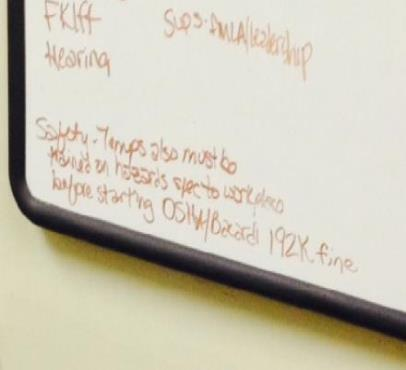 FKlft
Sups. FMLA/leadership
Hearing
Safety - Temps also must be
trained on hazards spec to workplace
before starting OSHA/Bacardi 192K fine